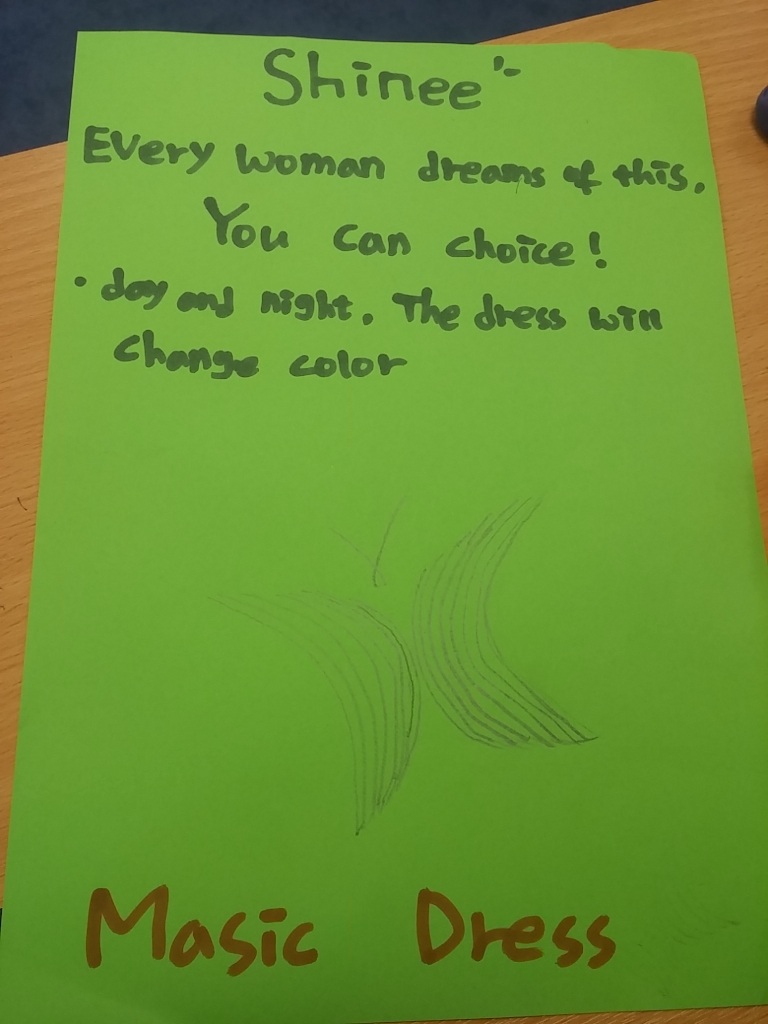 Shinee
Every woman dreams of this.
You can choice!
• day and night. The dress will
change color
Masic Dress